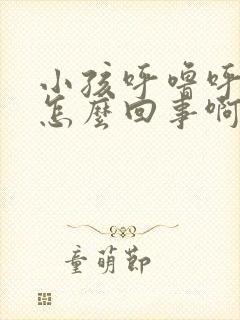 小孩呼噜呼
怎麼回事啊
童萌節